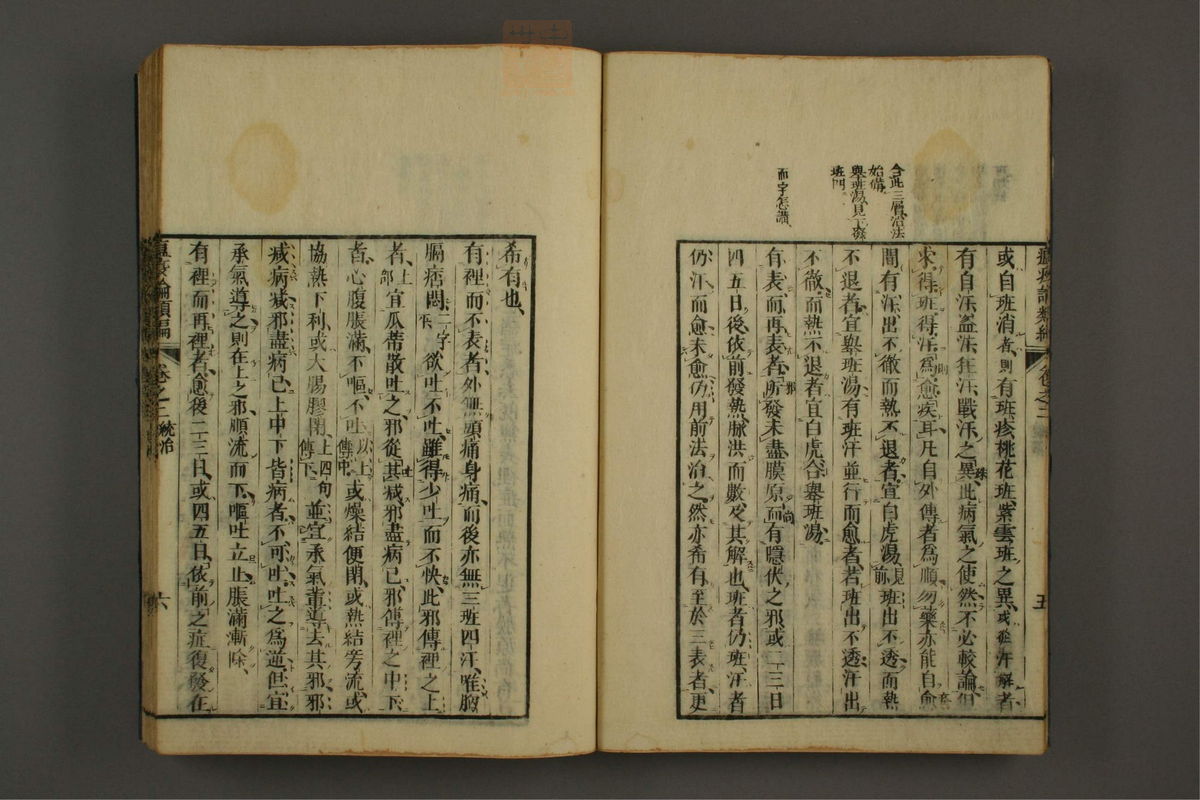 合此三層治法
始備
舉斑湯見下發
斑門
而字怎讀
瘟疫論類編 卷之二 五
或自班消者則有班疹桃花班紫雲班之異或從汗解者
有自汗盜汗狂汗戰汗之異此病氣之使然不必較論但
求得班得汗爲愈疾耳凡自外傳者爲順勿藥亦能自愈
間有汗出不徹而熱不退者宜白虎湯見前班出不透而熱
不退者宜舉班湯有班汗並行而愈者若班出不透汗出
不徹而熱不退者宜白虎合舉班湯
有表而再表者所發未盡膜原尚有隱伏之邪或二三日
四五日後依前發熱脉洪而數及其解也班者仍班汗者
仍汗而愈未愈仍用前法治之然亦希有至於三表者更
希有也
有裡而不表者外無頭痛身痛而後亦無三班四汗唯胸
膈痞悶二字下欲吐不吐雖得少吐而不快此邪傳裡之上
者上部宜瓜蒂散吐之邪從其減邪盡病已邪傳裡之中下
者心腹脹滿不嘔不吐以上傳中或燥結便閉或熱結旁流或
協熱下利或大腸膠閉上四句傳下並宜承氣輩導去其邪邪
減病減邪盡病已上中下皆病者不可吐吐之爲逆但宜
承氣導之則在上之邪順流而下嘔吐立止脹滿漸除
有裡而再裡者愈後二三日或四五日依前之症復發在
瘟疫論類編 卷之二 統治 六